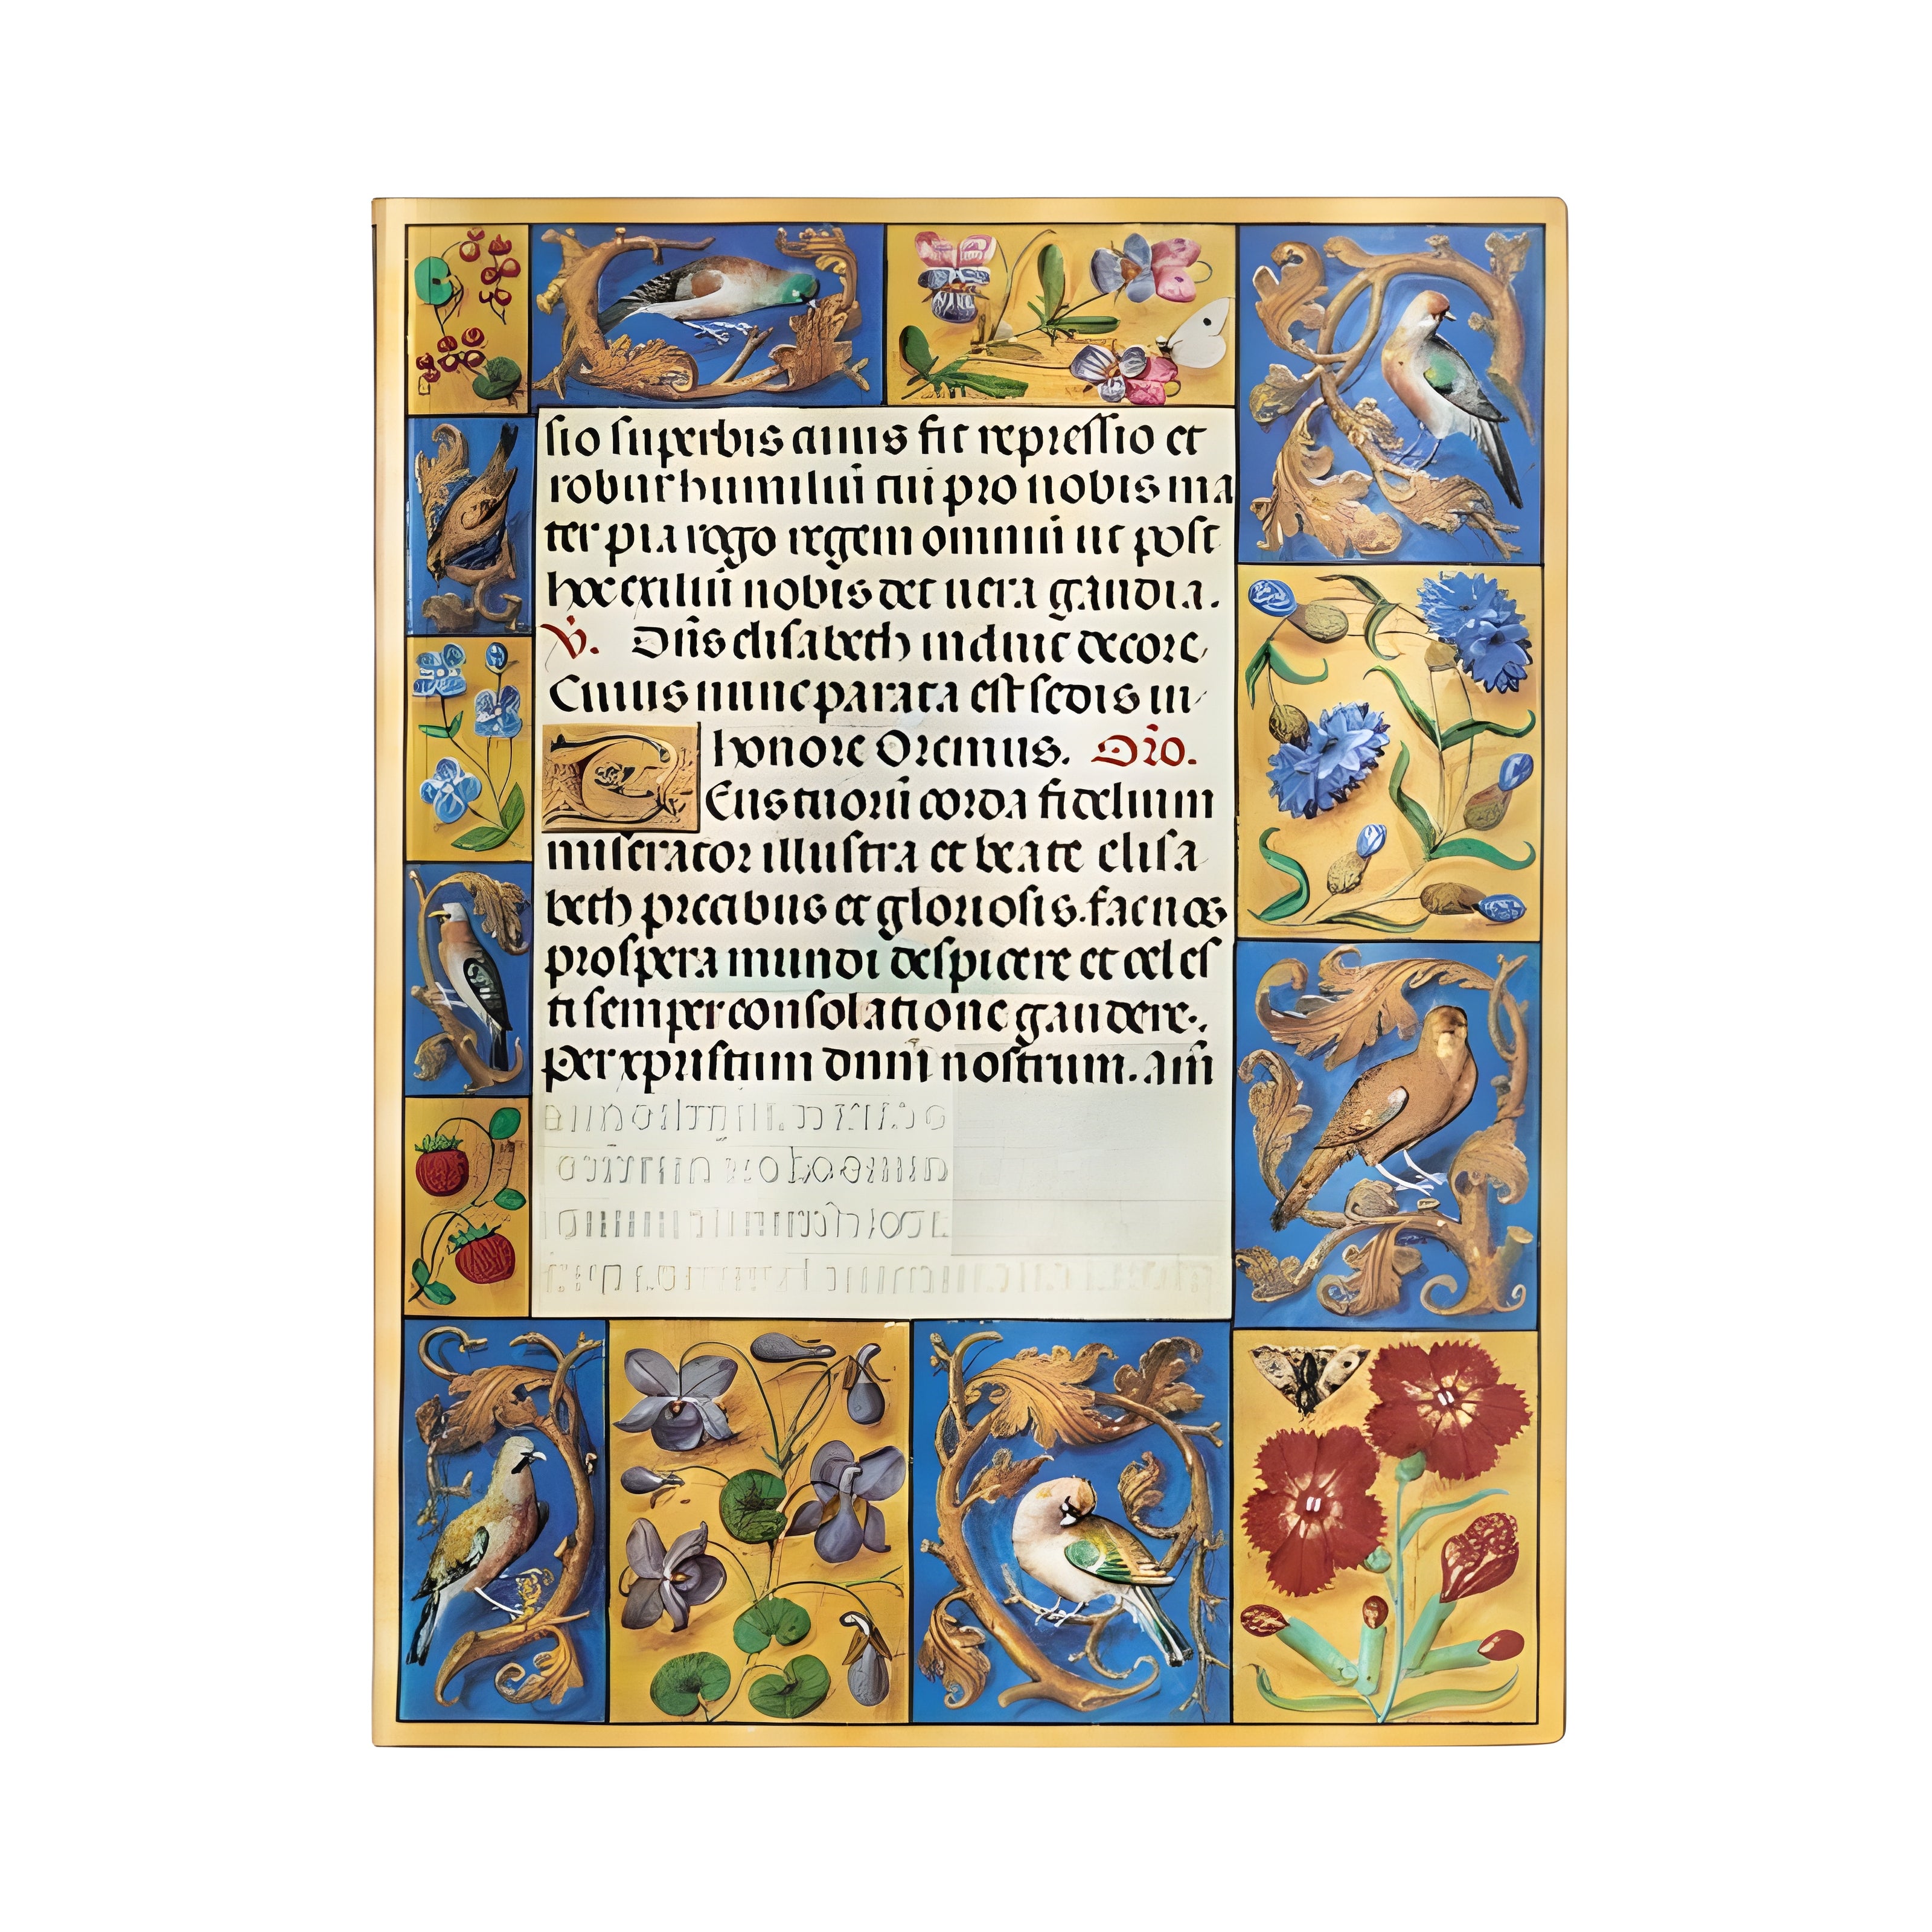 sio superbis cuius fit repressio et
robur humiliū cui pro nobis ma
ter pia rogo regem omniū ut post
hoc exiliū nobis det uera gaudia.
V̇. Dn̄s elisabeth induit decore
Cuius nunc parata est sedis in
honore Oremus. Or̄o.
Eus tuorū corda fidelium
miserator illustra et beate elisa
beth precibus et gloriosis. fac nos
prospera mundi despicere et celes
ti semper consolatione gaudere.
Per xp̄ristum dnm̄ nostrum. am̄